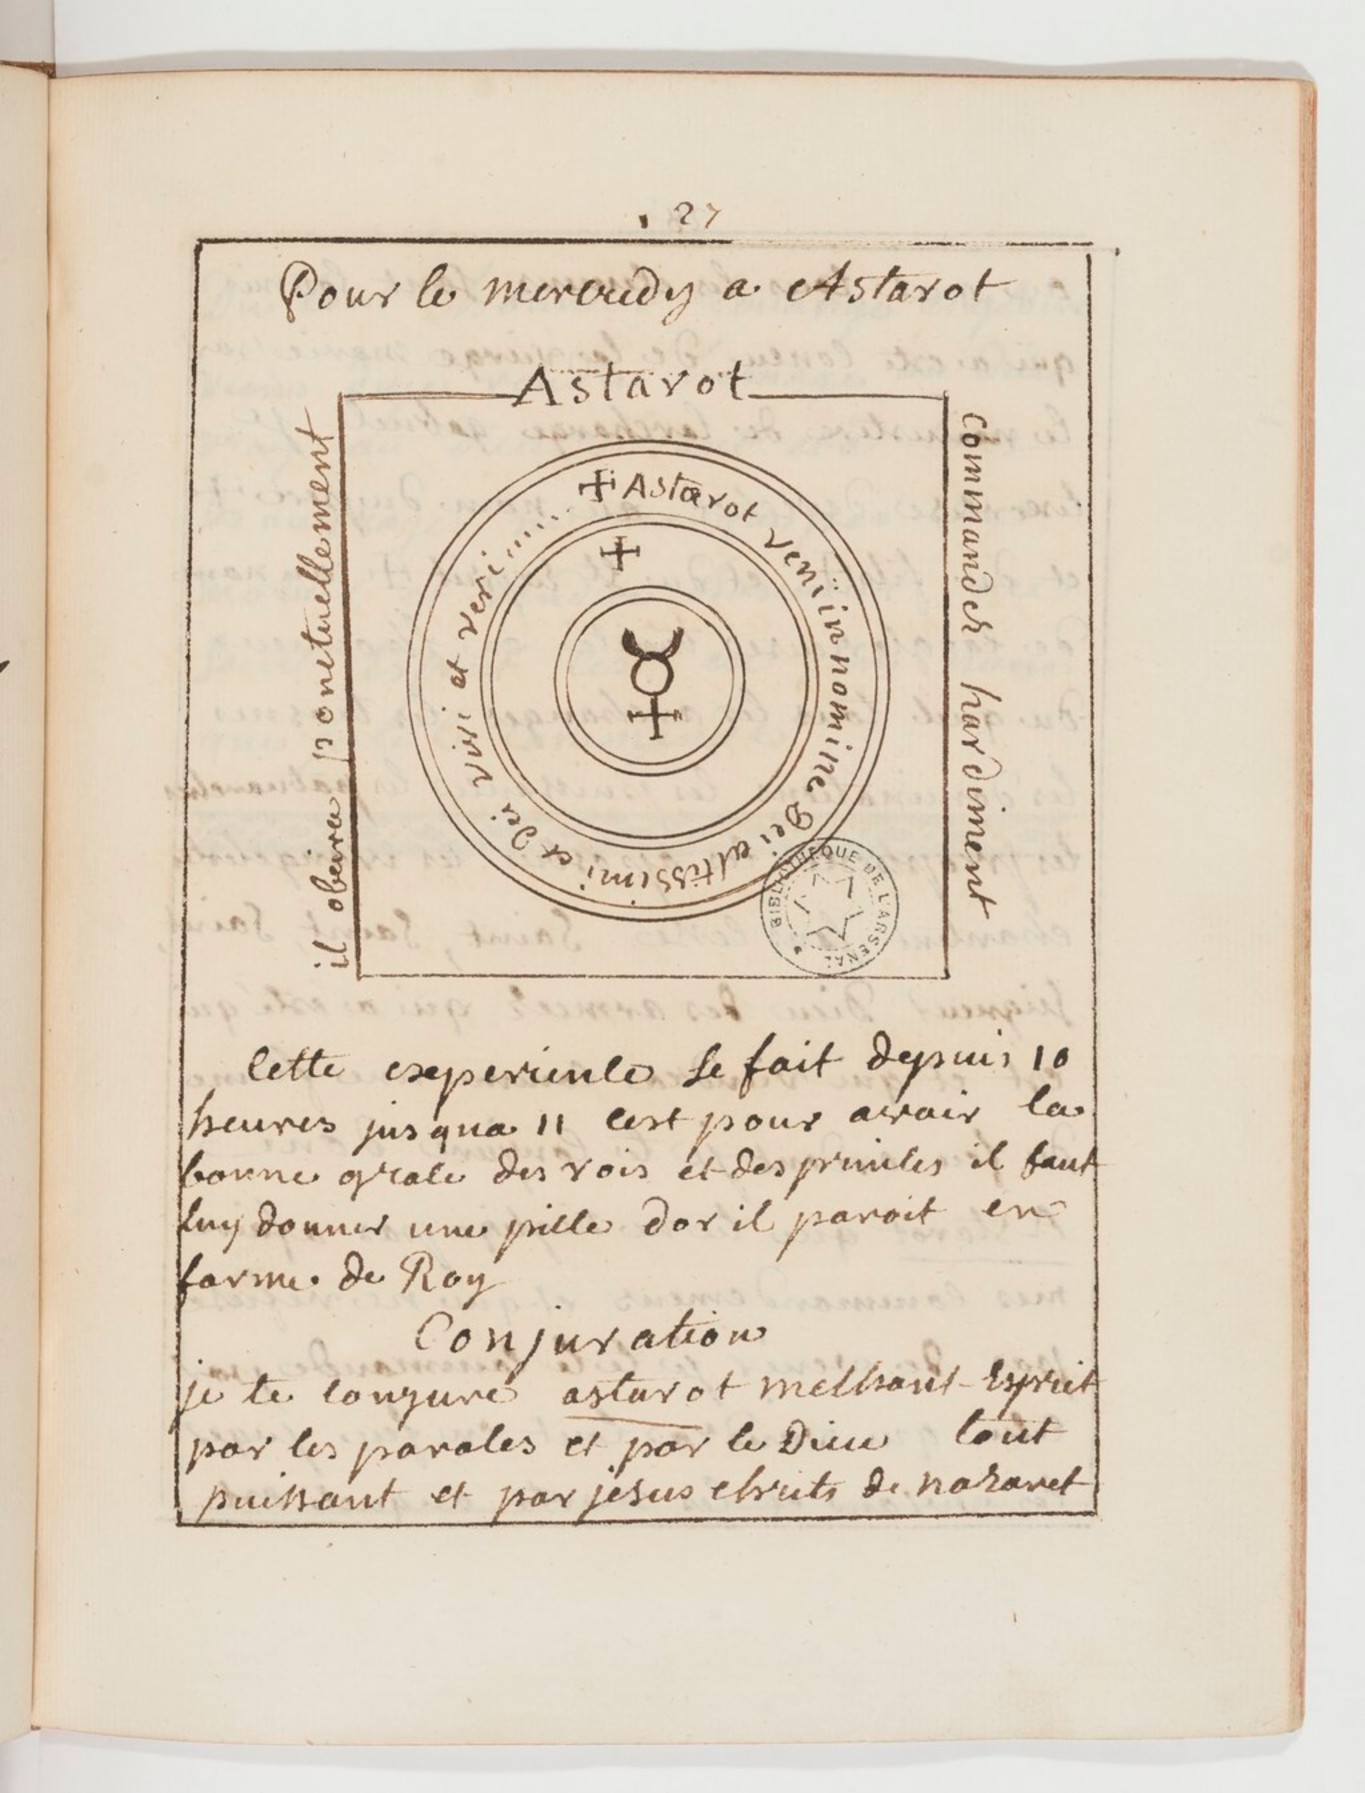 27
Pour le mercredy a Astarot
Astarot
il obeira ponctuellement
commandez hardiment
+ Astarot veni in nomine Dei altissimi et Dei vivi et veri
BIBLIOTHEQUE DE L'ARSENAL
Cette experience se fait depuis 10
heures jusqua 11 cest pour avoir la
bonne grace des rois et des princes il faut
luy donner une pille dor il paroit en
forme de Roy
Conjuration
je te conjure astarot mechant Esprit
par les paroles et par le Dieu tout
puissant et par jesus christs de nazaret